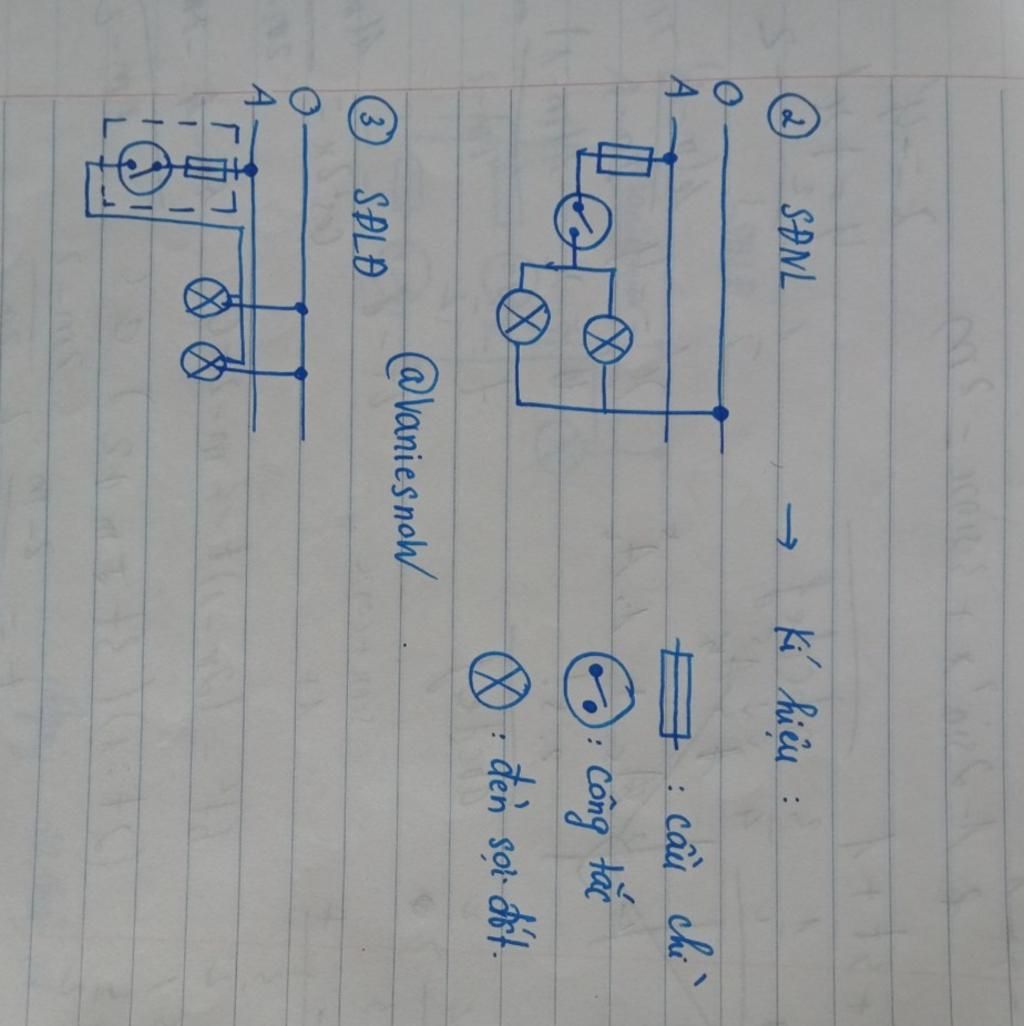 ② SĐNL → Kí hiệu :
O
A
: cầu chì
: công tắc
: đèn sợi đốt.
③ SĐLĐ
@vaniesnow
O
A